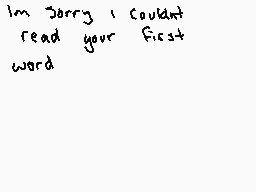 Im sorry i couldnt
read your first
word